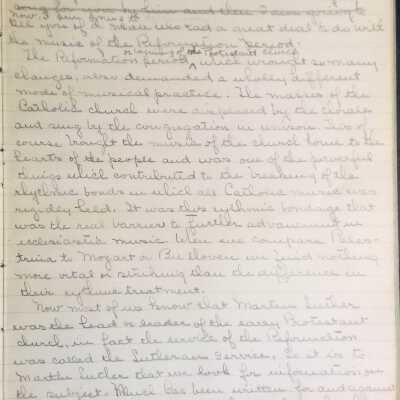 song for now by him and then I am going to
now I am going to
tell you of a man who had a great deal to do with
the music of the Reformation period.
or beginning of the Protestant Church
The Reformation period, which wrought so many
changes, also demanded a wholly different
mode of musical practice. The masses of the
Catholic church were dispensed by the chorale
and sung by the congregation in unison. This of
course brought the music of the church home to the
hearts of the people and was one of the powerful
things which contributed to the breaking of the
rhythmic bonds in which all Catholic music was
rigidly held. It was this rythmic bondage that
was the real barrier to further advancement in
ecclesiastic music. When we compare Pales-
trina to Mozart or Beethoven we find nothing
more vital or striking than the difference in
their rythmic treatment.
Now most of us know that Martin Luther
was the head or leader of the early Protestant
church, in fact the service of the Reformation
was called the Lutheran Service. So it is to
Martin Luther that we look for information on
the subject. Music has been written for and against